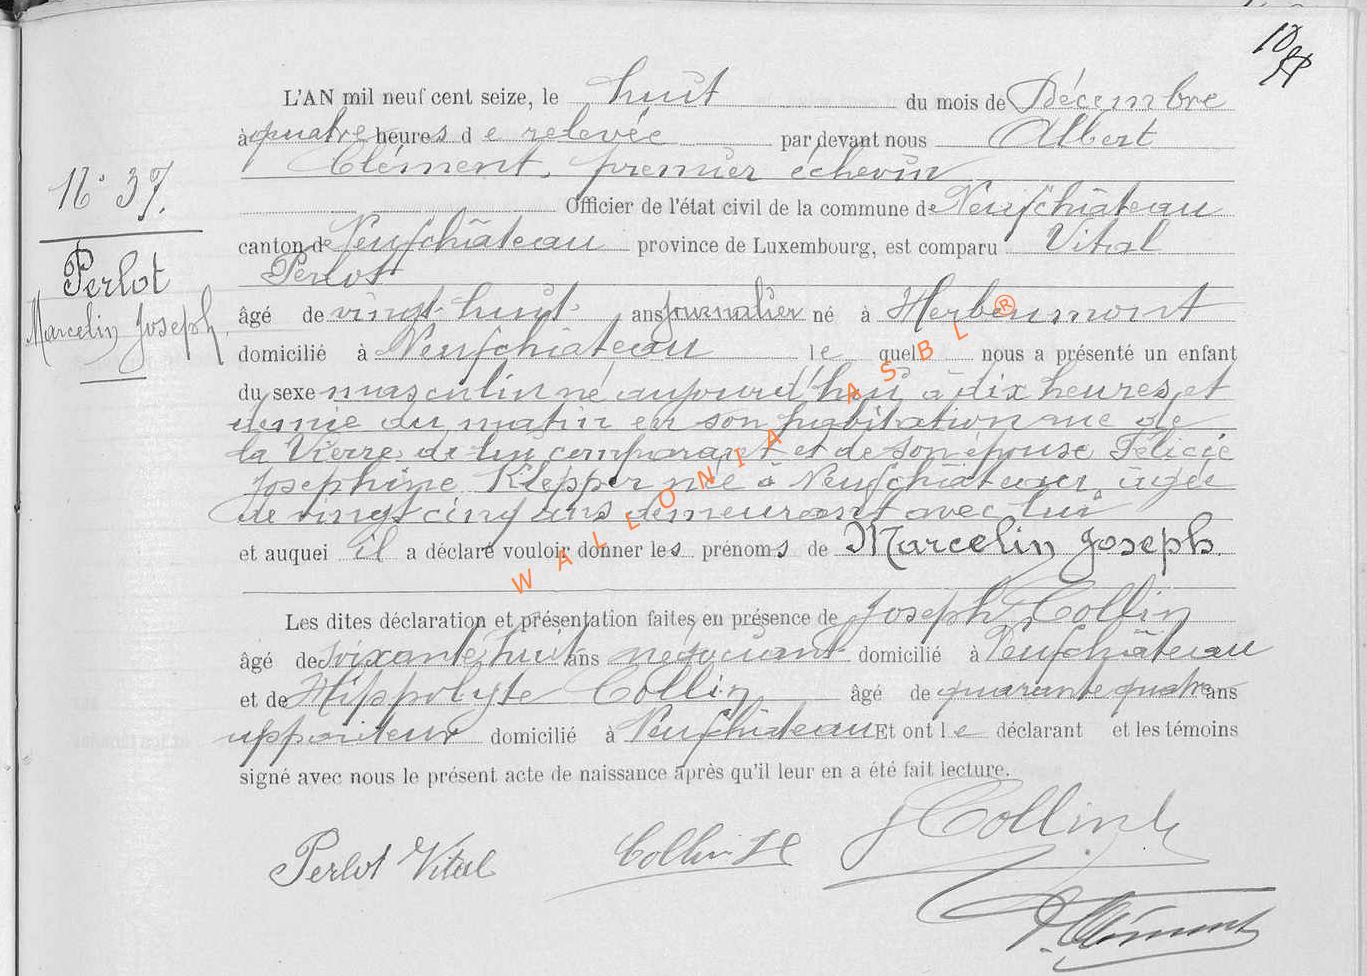 10
L'AN mil neuf cent seize, le huit du mois de Décembre
à quatre heures de relevée par devant nous Albert
Clément, premier échevin
N° 37.
Officier de l'état civil de la commune de Neufchâteau
canton de Neufchâteau province de Luxembourg, est comparu Vital
Perlot
Perlot
Marcelin Joseph.
âgé de vingt-huit ans journalier né à Herbeumont
domicilié à Neufchâteau le quel nous a présenté un enfant
du sexe masculin né aujourd'hui à dix heures et
demie du matin en son habitation rue de
la Vierre, de lui comparant et de son épouse Félicie
Josephine Klepper née à Neufchâteau, âgée
de vingt cinq ans demeurant avec lui
et auquel il a déclaré vouloir donner les prénoms de Marcelin Joseph.
Les dites déclaration et présentation faites en présence de Joseph Collin
âgé de soixante huit ans négociant domicilié à Neufchâteau
et de Hippolyte Collin âgé de quarante quatre ans
appariteur domicilié à Neufchâteau Et ont le déclarant et les témoins
signé avec nous le présent acte de naissance après qu'il leur en a été fait lecture.
J Collin
Perlot Vital Collin H
Clément
WALLONIA ASBL ®